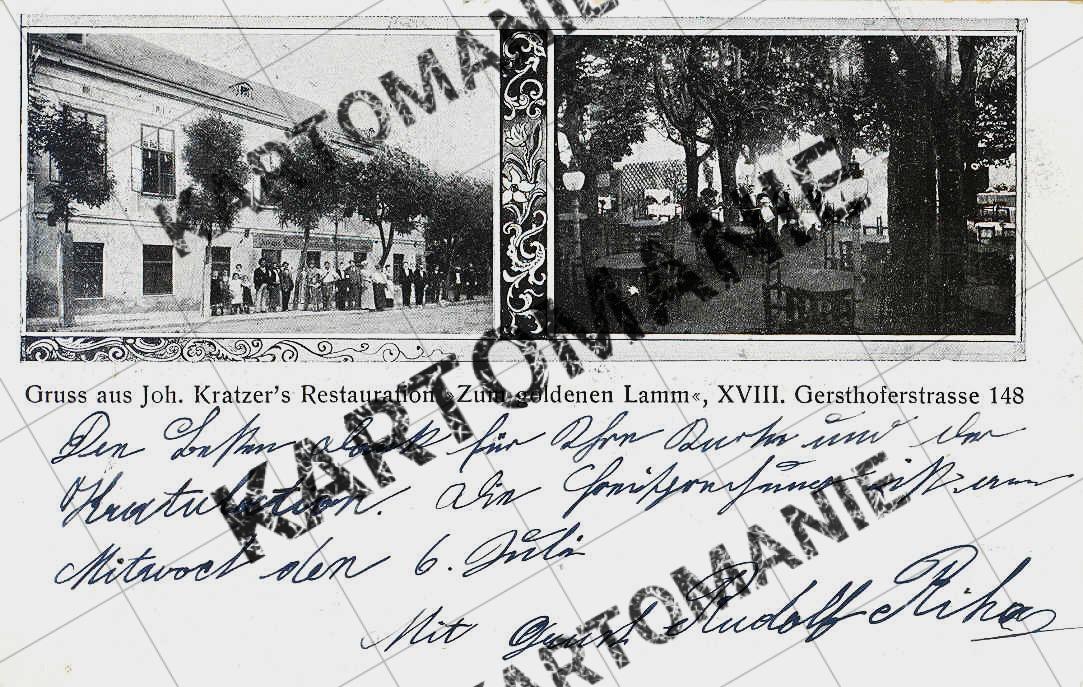 Gruss aus Joh. Kratzer's Restauration »Zum goldenen Lamm«, XVIII. Gersthoferstrasse 148
Den besten Dank für Ihre Karte und der
Kratulation. Die Freisprechung ist am
Mitwoch den 6. Juli
Mit Gruß Rudolf Riha
KARTOMANIE
KARTOMANIE
KARTOMANIE
KARTOMANIE
KARTOMANIE